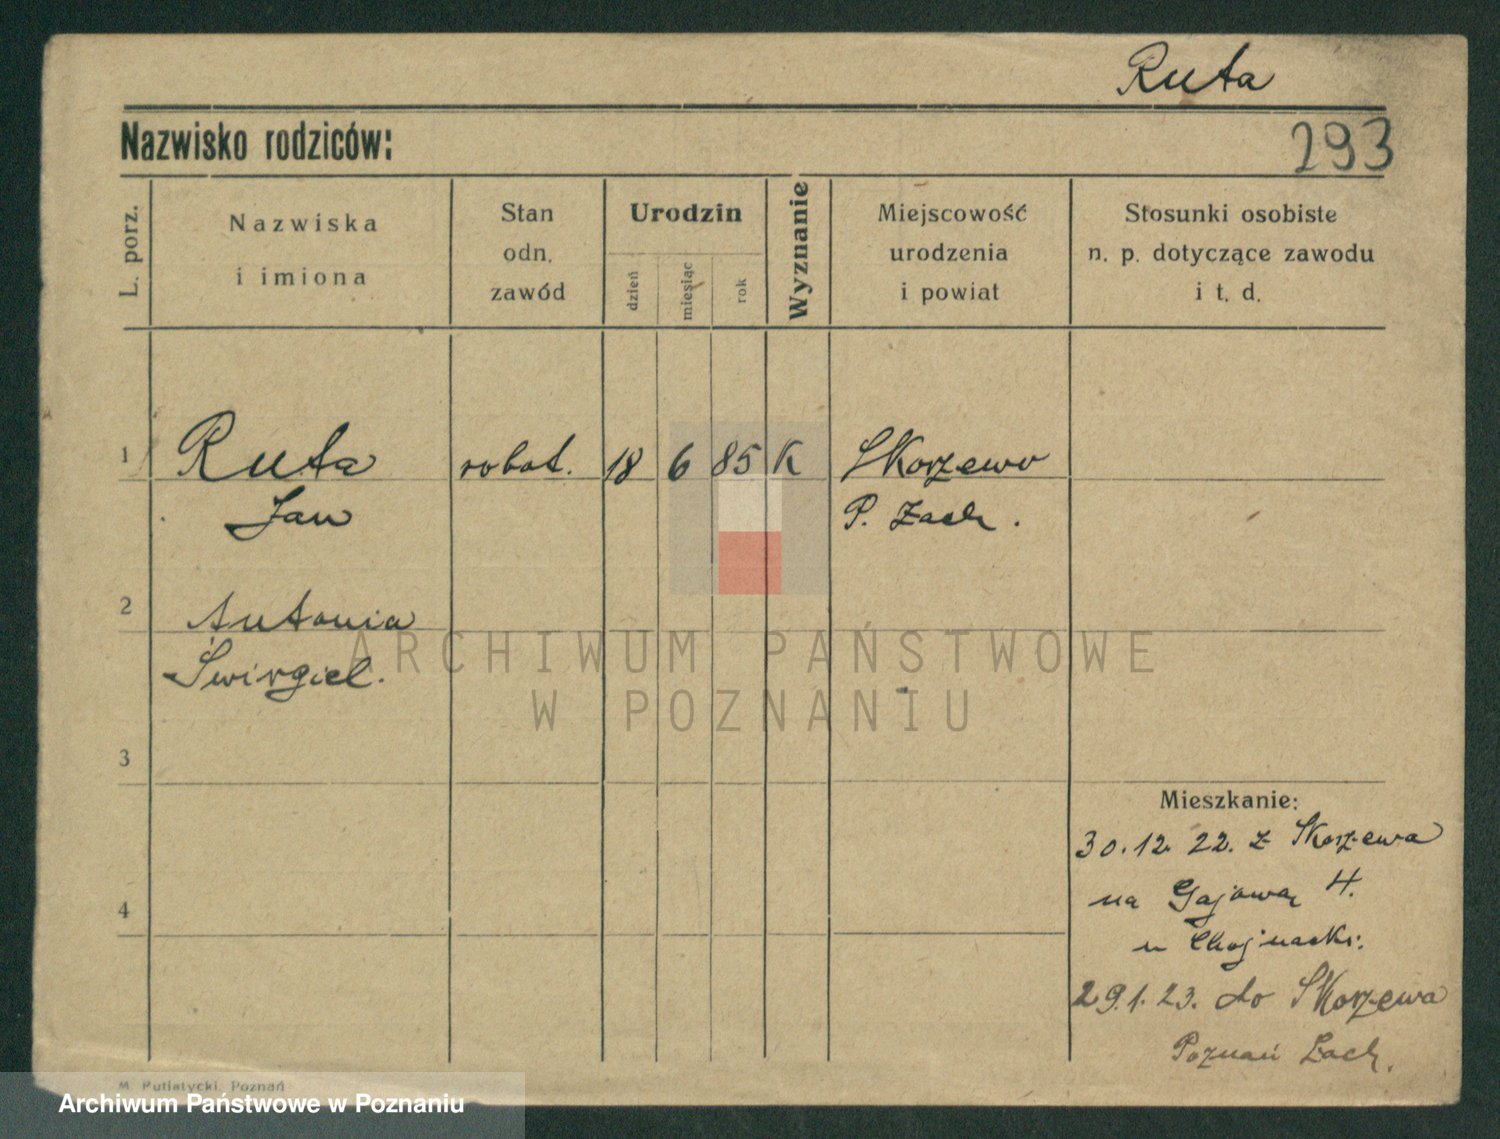 Ruta
Nazwisko rodziców:
293
L. porz.
Nazwiska
i imiona
Stan
odn.
zawód
Urodzin
dzień
miesiąc
rok
Wyznanie
Miejscowość
urodzenia
i powiat
Stosunki osobiste
n. p. dotyczące zawodu
i t. d.
1 Ruta robot. 18 6 85 K Skorzewo
Jan P. Zach.
2 Antonia
Świrgiel.
ARCHIWUM PAŃSTWOWE
W POZNANIU
3
Mieszkanie:
30.12 22. z Skorzewa
4
na Gajową 4.
u Chojnacki.
29.1.23. do Skorzewa
Poznań Zach.
M. Putiatycki, Poznań
Archiwum Państwowe w Poznaniu